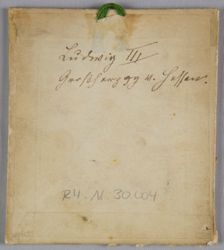 Ludwig III
Großherzog v. Hessen.
R4. N. 30.004